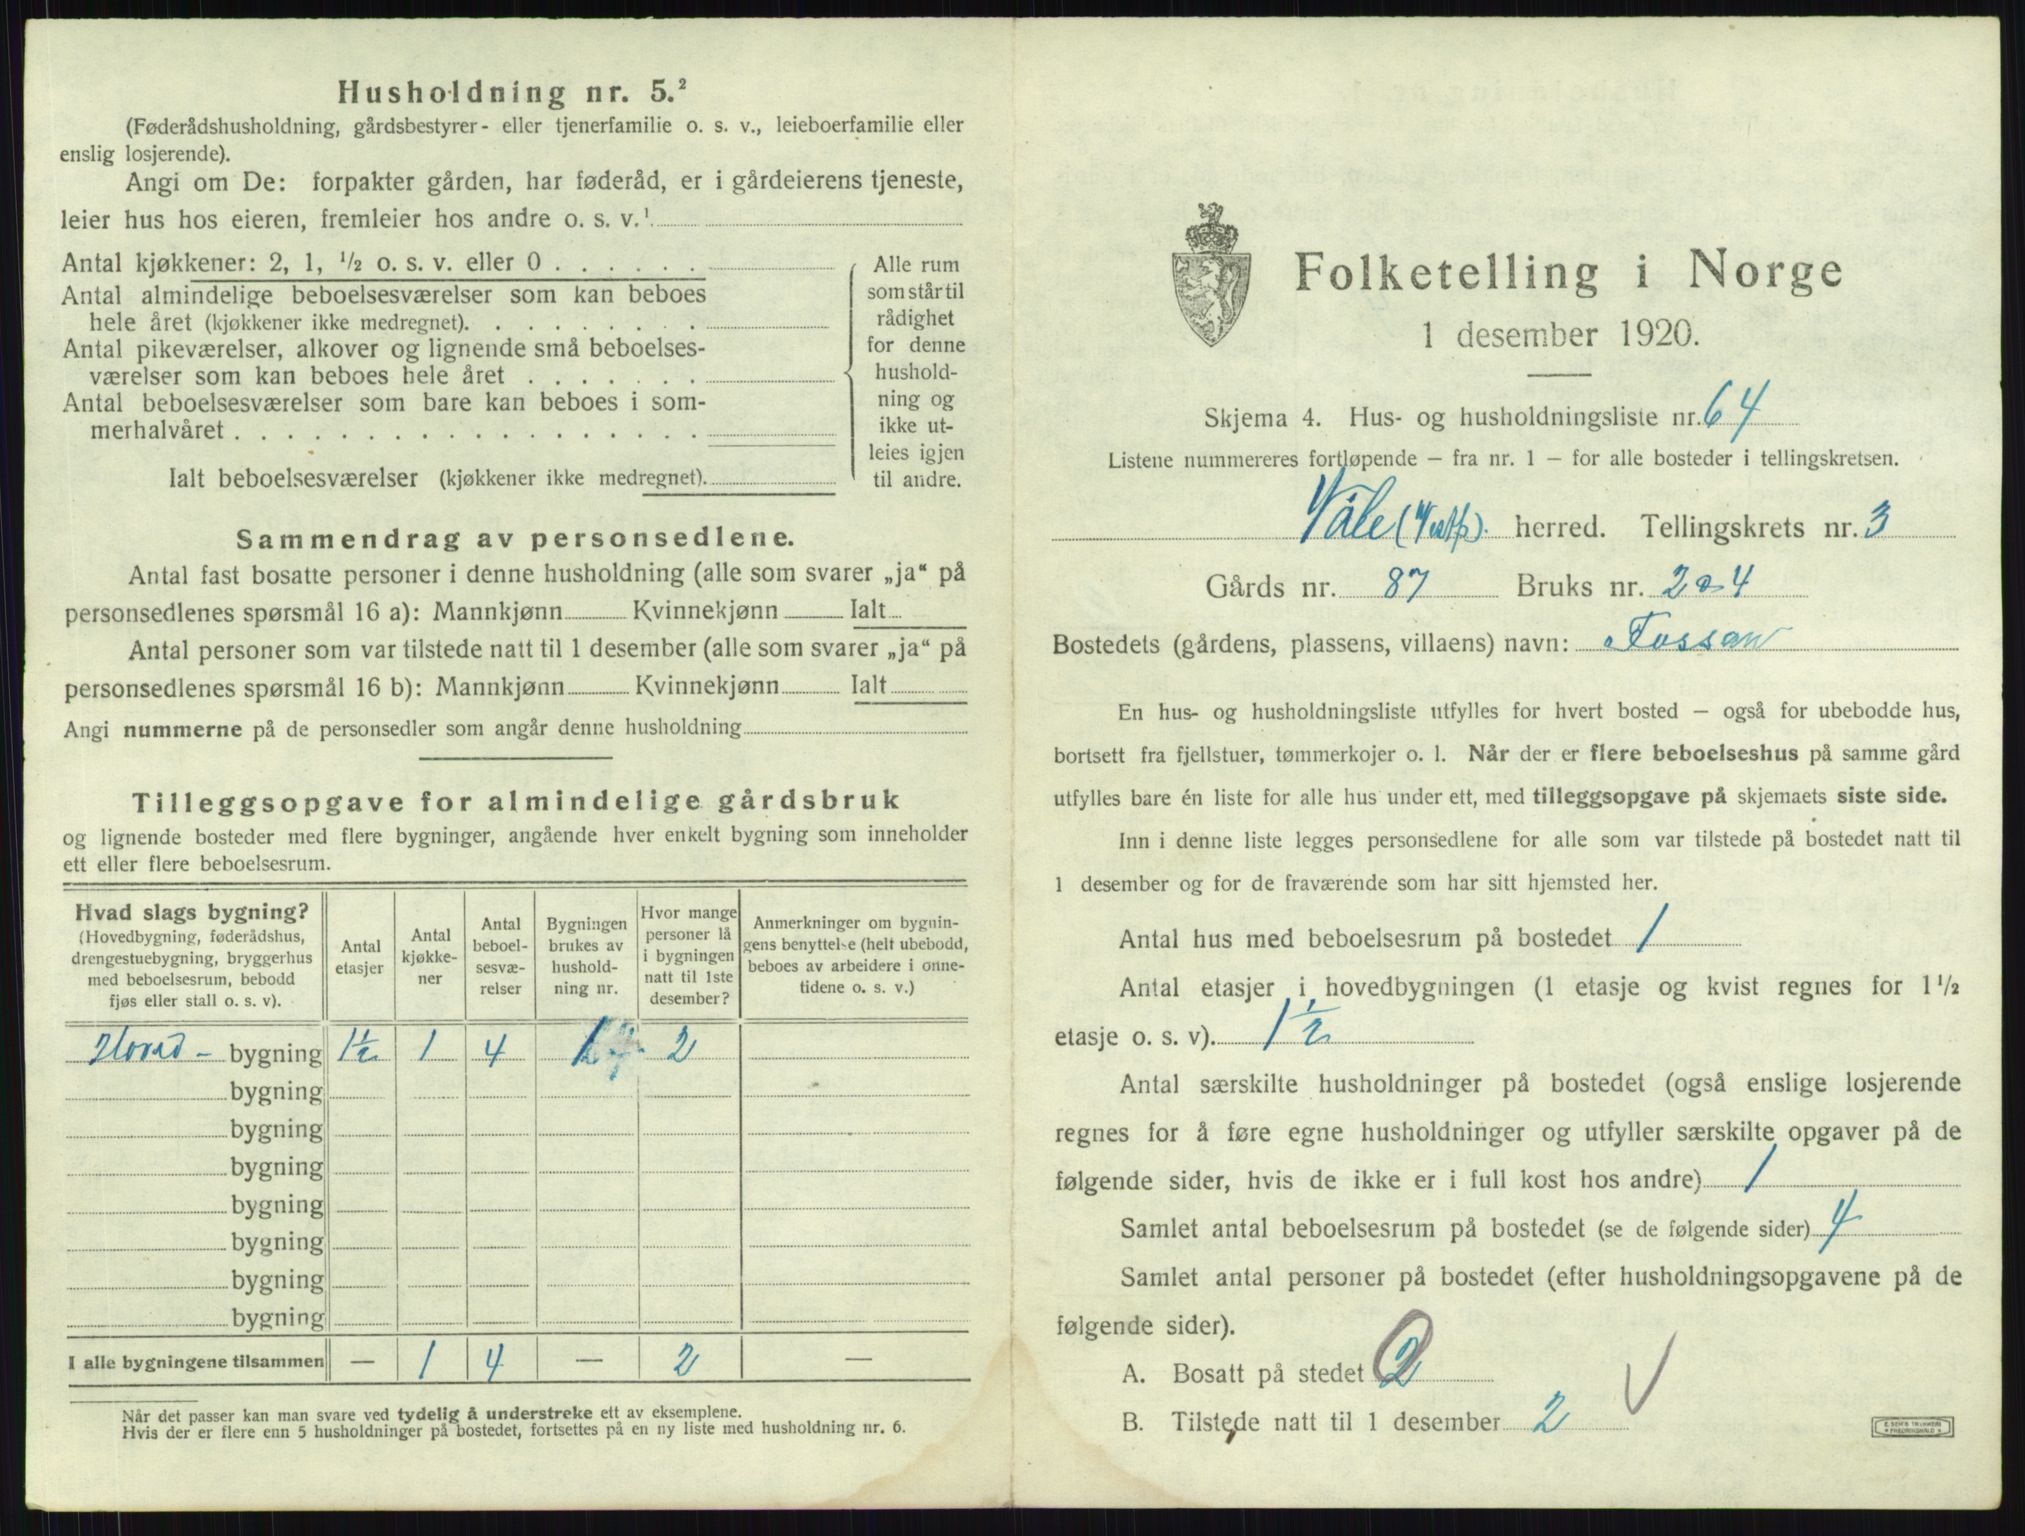 Husholdning nr. 5.²
(Føderådshusholdning, gårdsbestyrer- eller tjenerfamilie o. s. v., leieboerfamilie eller
enslig losjerende).
Angi om De: forpakter gården, har føderåd, er i gårdeierens tjeneste,
leier hus hos eieren, fremleier hos andre o. s. v.¹
Antal kjøkkener: 2, 1, ½ o. s. v. eller 0 . . . . . .
Antal almindelige beboelsesværelser som kan beboes
hele året (kjøkkener ikke medregnet). . . . . . . . .
Antal pikeværelser, alkover og lignende små beboelses-
værelser som kan beboes hele året . . . . . . .
Antal beboelsesværelser som bare kan beboes i som-
merhalvåret . . . . . . . . . . . . . . . . . .
Ialt beboelsesværelser (kjøkkener ikke medregnet).
Alle rum
som står til
rådighet
for denne
hushold-
ning og
ikke ut-
leies igjen
til andre.
Sammendrag av personsedlene.
Antal fast bosatte personer i denne husholdning (alle som svarer „ja“ på
personsedlenes spørsmål 16 a): Mannkjønn Kvinnekjønn Ialt
Antal personer som var tilstede natt til 1 desember (alle som svarer „ja“ på
personsedlenes spørsmål 16 b): Mannkjønn Kvinnekjønn Ialt
Angi nummerne på de personsedler som angår denne husholdning
Tilleggsopgave for almindelige gårdsbruk
og lignende bosteder med flere bygninger, angående hver enkelt bygning som inneholder
ett eller flere beboelsesrum.
Hvad slags bygning?
(Hovedbygning, føderådshus,
drengestuebygning, bryggerhus
med beboelsesrum, bebodd
fjøs eller stall o. s. v).
Antal
etasjer
Antal
kjøkke-
ner
Antal
beboel-
sesvæ-
relser
Bygningen
brukes av
hushold-
ning nr.
Hvor mange
personer lå
i bygningen
natt til 1ste
desember?
Anmerkninger om bygnin-
gens benyttelse (helt ubebodd,
beboes av arbeidere i onne-
tidene o. s. v.)
Hoved- bygning 1½ 1 4 1 2
bygning
bygning
bygning
bygning
bygning
bygning
bygning
I alle bygningene tilsammen — 1 4 — 2 —
Når det passer kan man svare ved tydelig å understreke ett av eksemplene.
Hvis der er flere enn 5 husholdninger på bostedet, fortsettes på en ny liste med husholdning nr. 6.
Folketelling i Norge
1 desember 1920.
Skjema 4. Hus- og husholdningsliste nr. 64
Listene nummereres fortløpende — fra nr. 1 — for alle bosteder i tellingskretsen.
Våle (Vestf). herred. Tellingskrets nr. 3
Gårds nr. 87 Bruks nr. 2 4
Bostedets (gårdens, plassens, villaens) navn: Fossan
En hus- og husholdningsliste utfylles for hvert bosted — også for ubebodde hus,
bortsett fra fjellstuer, tømmerkojer o. l. Når der er flere beboelseshus på samme gård
utfylles bare én liste for alle hus under ett, med tilleggsopgave på skjemaets siste side.
Inn i denne liste legges personsedlene for alle som var tilstede på bostedet natt til
1 desember og for de fraværende som har sitt hjemsted her.
Antal hus med beboelsesrum på bostedet 1
Antal etasjer i hovedbygningen (1 etasje og kvist regnes for 1½
etasje o. s. v). 1½
Antal særskilte husholdninger på bostedet (også enslige losjerende
regnes for å føre egne husholdninger og utfyller særskilte opgaver på de
følgende sider, hvis de ikke er i full kost hos andre) 1
Samlet antal beboelsesrum på bostedet (se de følgende sider) 4
Samlet antal personer på bostedet (efter husholdningsopgavene på de
følgende sider).
A. Bosatt på stedet 2
B. Tilstede natt til 1 desember 2